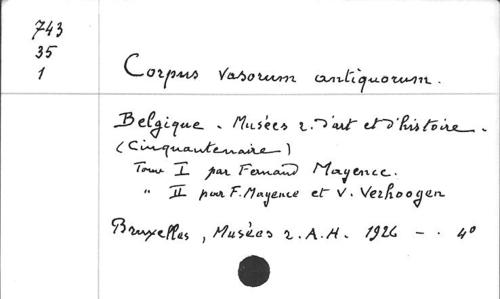 743
35
1
Corpus vasorum antiquorum.
Belgique. Musées r. d'art et d'histoire.
(Cinquantenaire)
Tome I par Fernand Mayence.
" II par F. Mayence et V. Verhoogen
Bruxelles, Musées r. A. H. 1926 - . 4°